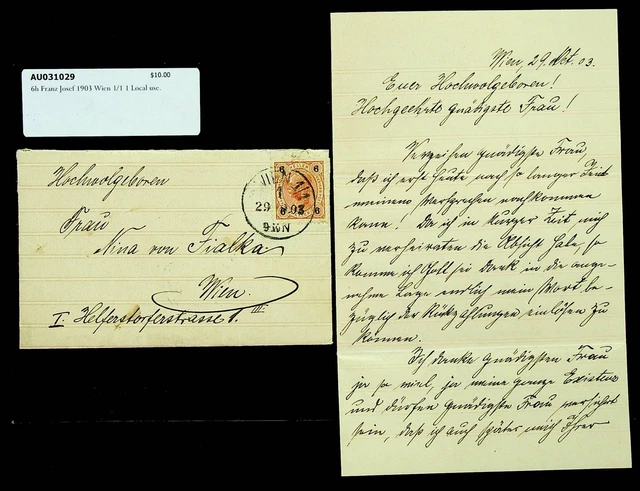 AU031029 $10.00
6h Franz Josef 1903 Wien 1/1 1 Local use.
Hochwolgeboren
Frau
Nina von Fialka
Wien.
I. Helferstorferstrasse 1. III.
6 6
WIEN 1/1
1
29 03
9 N
6 6
Wien, 29. Okt. 03.
Euer Hochwolgeboren!
Hochgeehrte gnädigste Frau!
Verzeihen gnädigste Frau,
daß ich erst heute nach so langer Zeit
meinem Versprechen nachkommen
kann! Da ich in kurzer Zeit mich
zu verheiraten die Absicht habe, so
komme ich Gott sei Dank in die ange-
nehme Lage endlich mein Wort be-
züglich der Rückzahlungen einlösen zu
können.
Ich danke gnädigsten Frau
ja so viel, ja meine ganze Existenz
und dürfen gnädigste Frau versichert
sein, daß ich auch später mich Ihrer